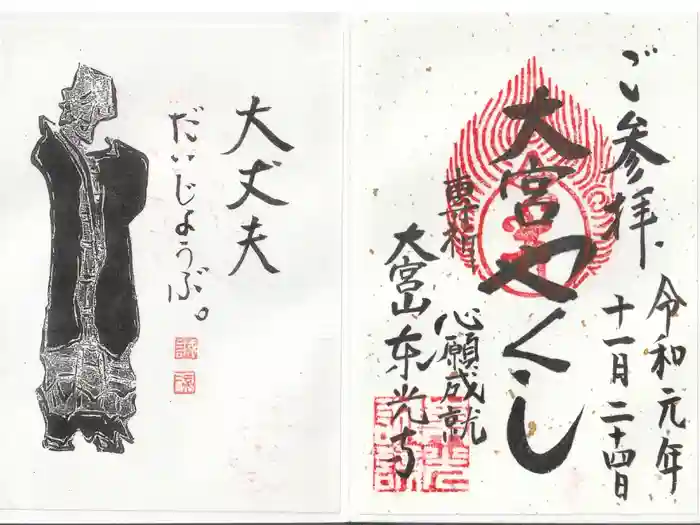 ご参拝
令和元年
十一月二十四日
大宮やくし
心願成就
大宮山東光寺
大丈夫
だいじょうぶ。